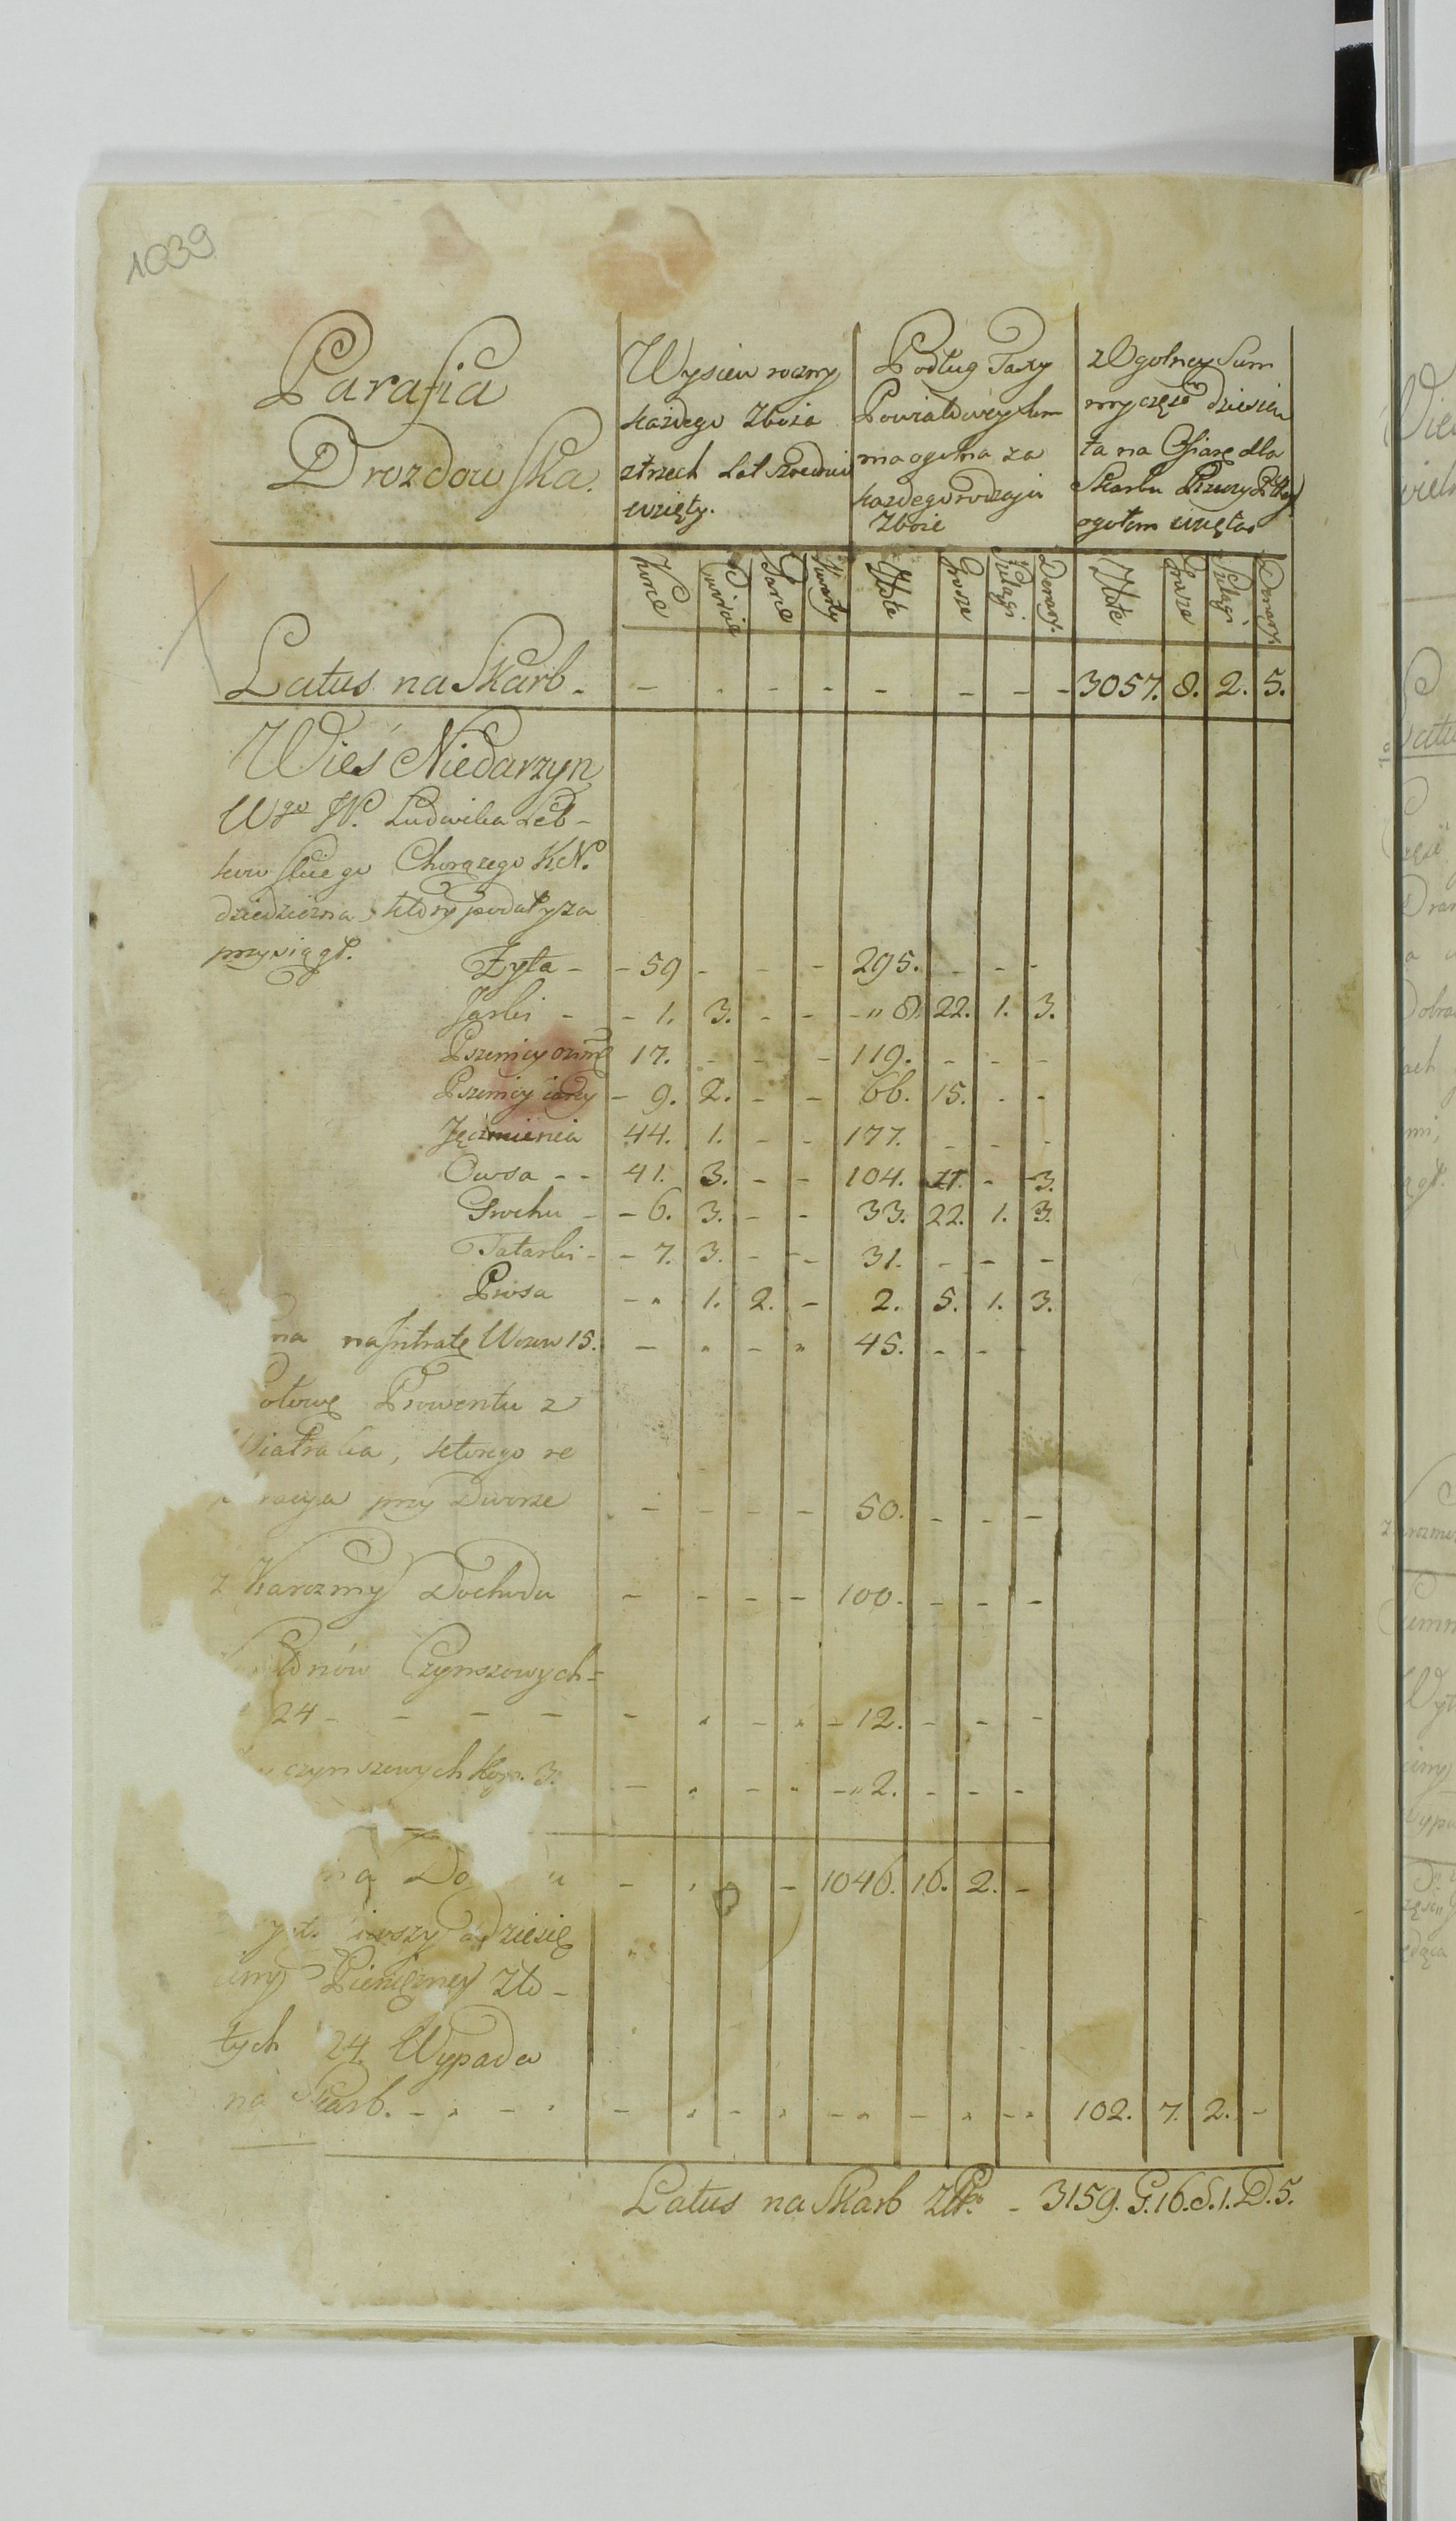 1039
Parafia
Drozdowska.
Wysiew roczny
każdego Zboża
z trzech Lat średnio
wzięty.
Podług Taxy
Powiatowey sum
ma ogolna za
każdego rodzaju
Zboże
z Ogolney Sum
my część dziesią
ta na Ofiarę dla
Skarbu Rzeczy
ogołem wzięta
Korce Cwierci Garce Kwarty Złote Grosze Szelągi Denary. Złote Grosze Szelągi Denary.
Latus na Skarb - - - - - - - - - 3057. 8. 2. 5.
Wieś Niedarzyn
Wgo JP. Ludwika Leb-
kowskiego Chorążego K.N.
dziedziczna, ktory podał y za
przysiągł.
Żyta - - 59 - - - 295. - - -
Jarki - - 1. 3. - - - " 8. 22. 1. 3.
Pszenicy ozimey 17. - - - 119. - - -
Pszenicy iarey - 9. 2. - - 66. 15. - -
Jęczmienia 44. 1. - - 177. - - -
Owsa - - 41. 3. - - 104. - 3.
Grochu - - 6. 3. - - 33. 22. 1. 3.
Tatarki - - 7. 3. - - 31. - - -
Prosa - " 1. 2. - 2. 5. 1. 3.
na na Intratę Wozow 15. - " - " 45. - - -
ołowę Prowentu z
iatraka, ktorego re
racya przy Dworze - - - - 50. - - -
z Karczmy Dochodu - - - - 100. - - -
dniów Czynszowych =
24 - - - - - " - " - 12. - - -
czynszowych Kop. 3. - " - " - " 2. - - -
Do - " - 1046. 16. 2. -
dziesię
ciny Pieniężney Zło -
tych 24 Wypada
na Skarb. - " - " - " - " - " - " - " 102. 7. 2. -
Latus na Skarb Złp. - 3159. G. 16. S. 1. D. 5.